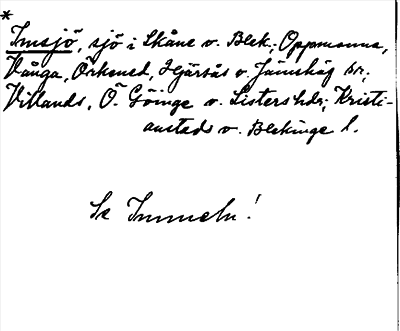 *
Imsjö, sjö i Skåne o. Blek.; Oppmanna,
Vånga, Örkened, Hjärsås o. Jämshög sn;
Villands, Ö. Göinge o. Listers hdr; Kristi-
anstads o. Blekinge l.
Se Immeln!